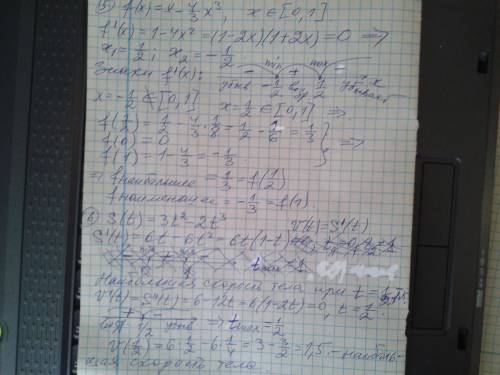 5) f(x) = x - 4/3 x³, x ∈ [0,1].
f'(x) = 1 - 4x² = (1-2x)(1+2x) = 0 ⇒
x₁ = 1/2; x₂ = -1/2
min max
Знаки f'(x): - -1/2 + 1/2 - x
убыв возр убывает
x = -1/2 ∉ [0,1] x = 1/2 ∈ [0,1] ⇒
f(1/2) = 1/2 - 4/3 · 1/8 = 1/2 - 1/6 = 1/3
f(0) = 0 } ⇒
f(1) = 1 - 4/3 = -1/3
⇒ f наибольшее = 1/3 = f(1/2)
f наименьшее = -1/3 = f(1)
6) S(t) = 3t² - 2t³ V(t) = S'(t)
S'(t) = 6t - 6t² = 6t(1-t)
Наибольшая скорость тела при t =
V'(t) = S''(t) = 6 - 12t = 6(1-2t) = 0, t = 1/2
+ -
1/2 убыв ⇒ t max = 1/2
V(1/2) = 6 · 1/2 - 6 · 1/4 = 3 - 3/2 = 1,5 - наиболь-
шая скорость тела